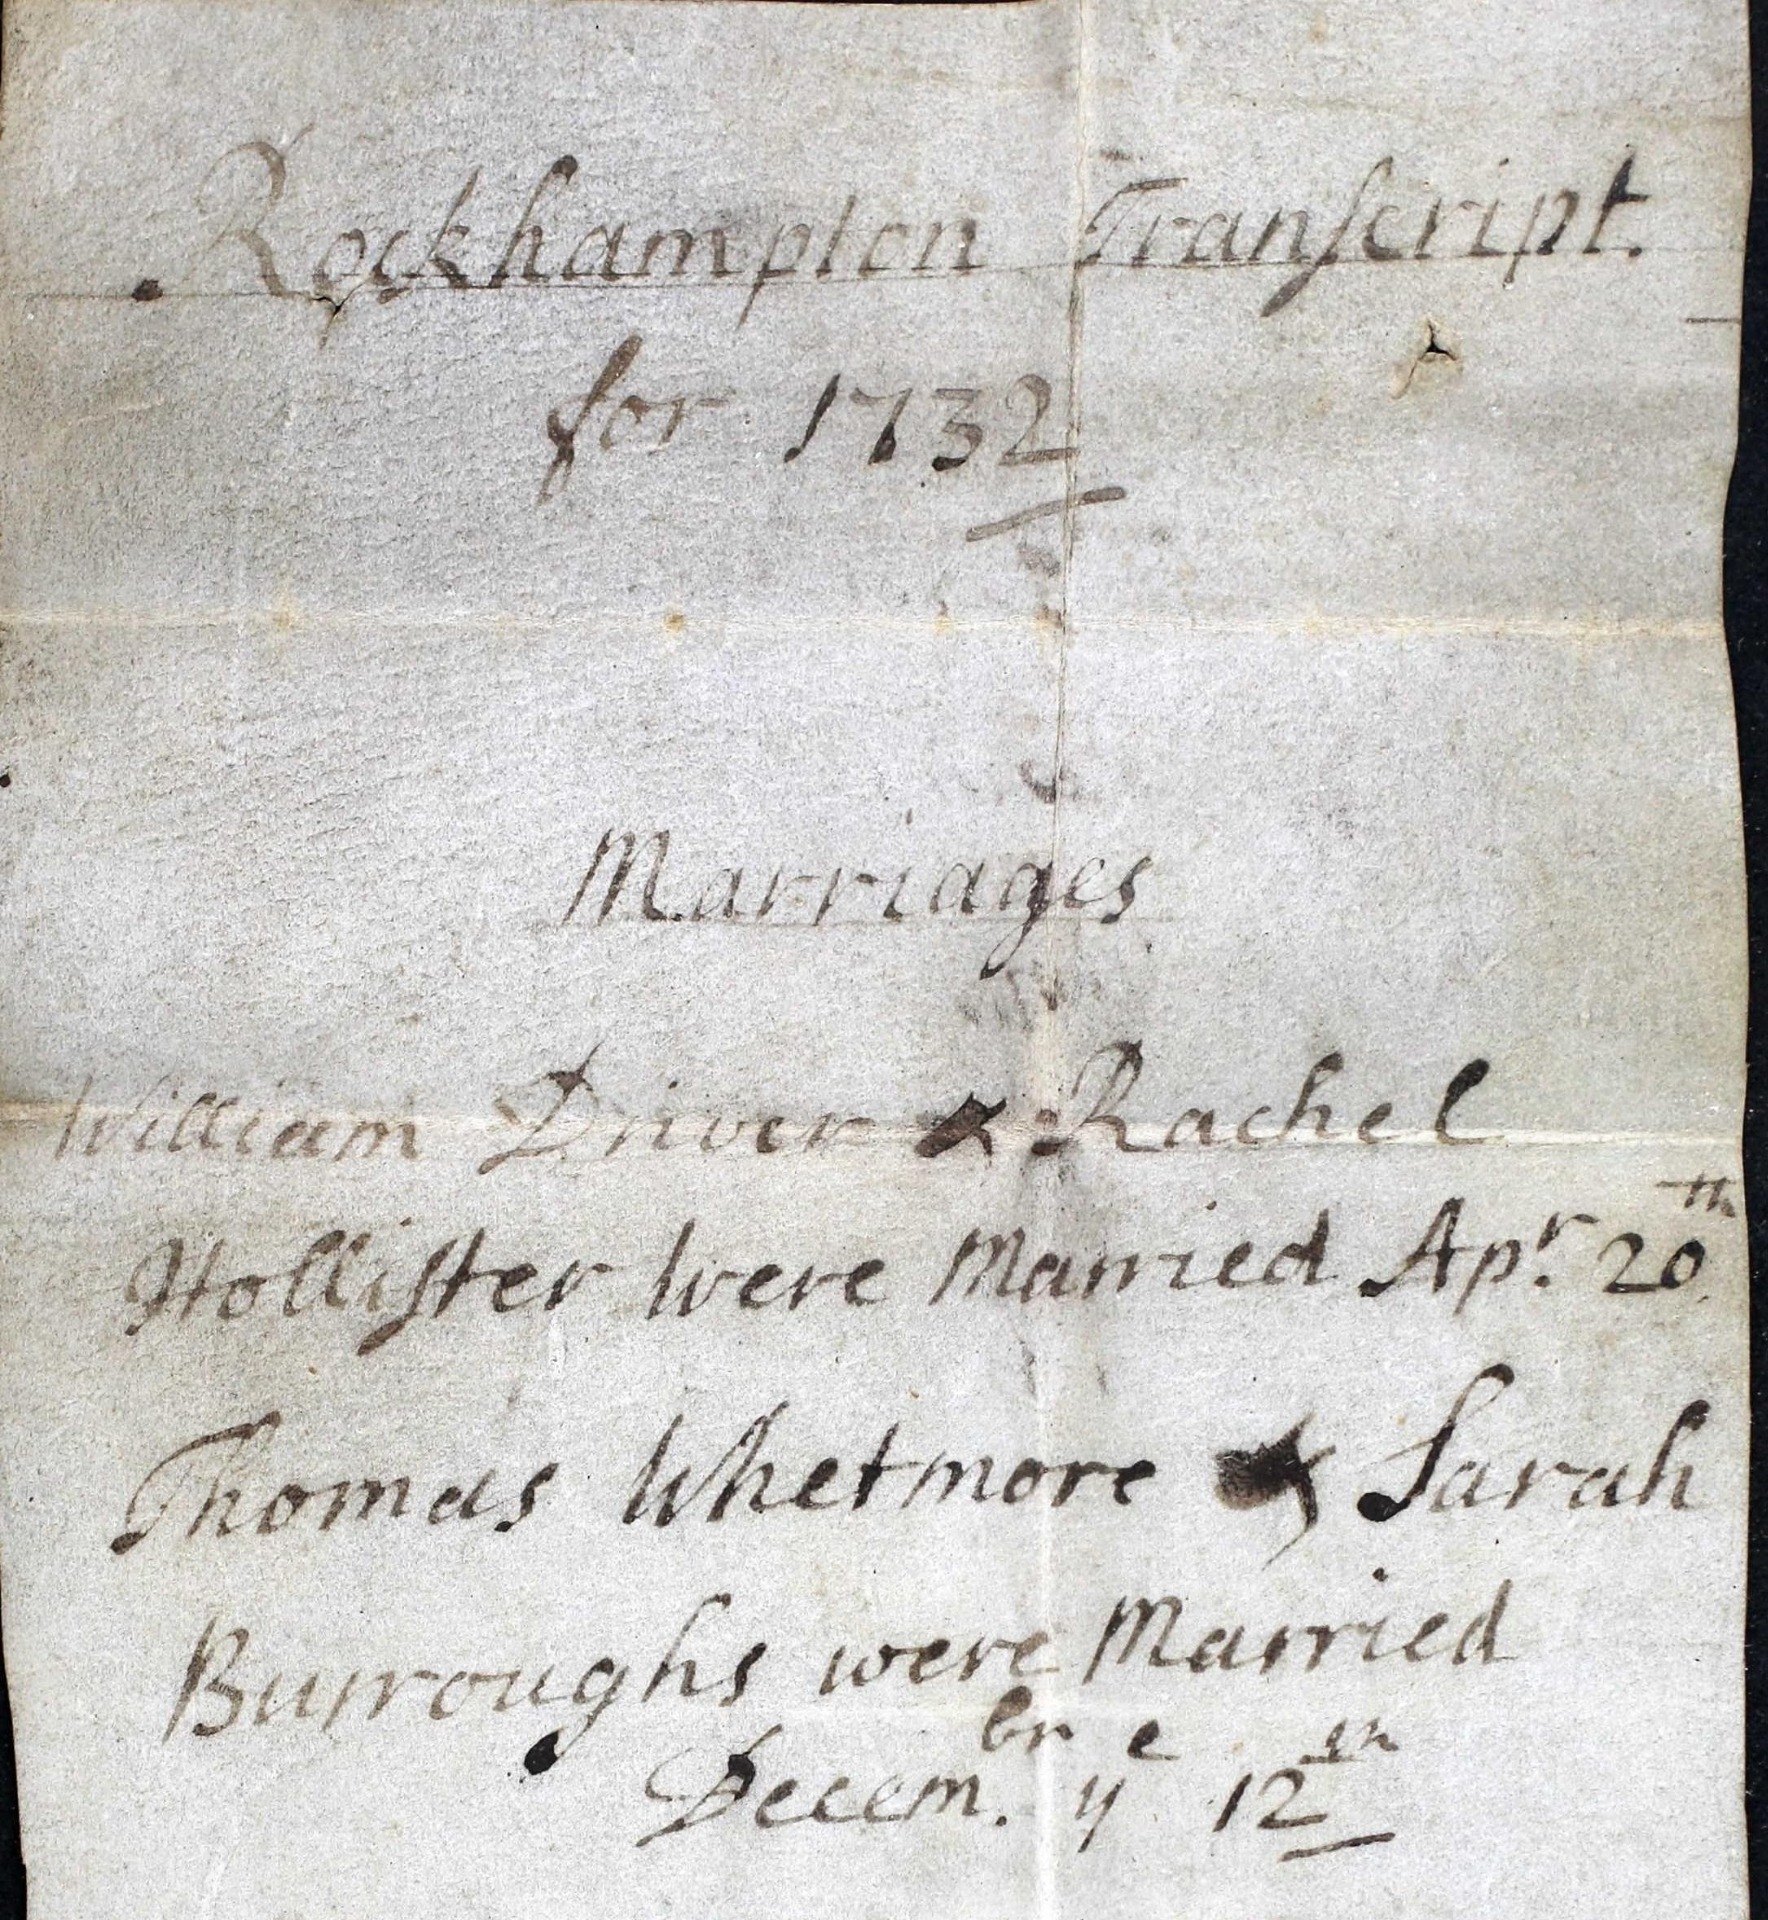 Rockhampton Transcript.
for 1732
Marriages
William Driver & Rachel
Hollister were Married Apr. 20th
Thomas Whetmore & Sarah
Burroughs were Married
Decembr. ye 12th